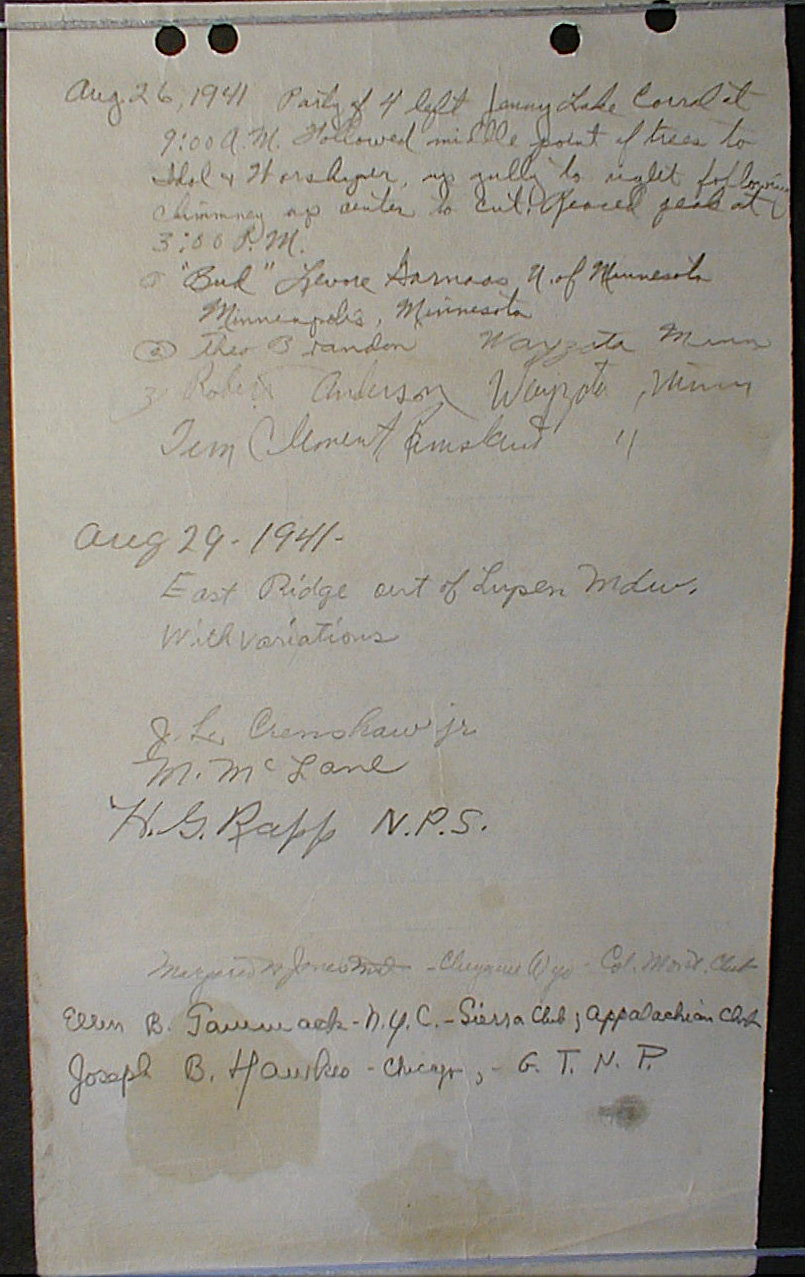 Aug. 26, 1941 Party of 4 left Jenny Lake Corral at
9:00 A.M. Followed middle point of trees to
Idol & Worshiper, up gully to right following
chimmney up center to cut. Reaced peak at
3:00 P.M.
"Bud" Levore U. of Minnesota
Minneapolis, Minnesota
② Theo Brandon Wayzata Minn
3 Robert Anderson Wayzata, Minn
Clement "
Aug 29 - 1941 -
East Ridge out of Lupen Mdw.
With variations
J. L. Crenshaw jr
M. McLane
H. G. Rapp N.P.S.
Jones - Cheyenne Wyo - Col. Mont. Club
Ellen B. - N.Y.C. - Sierra Club; Appalachian Club
Joseph B. Hawkes - Chicago, - G. T. N. P.